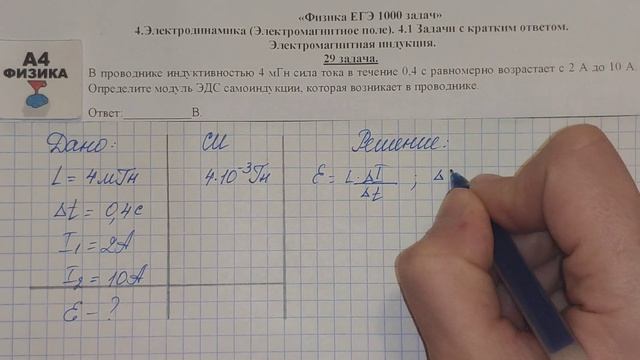 «Физика ЕГЭ 1000 задач»
4.Электродинамика (Электромагнитное поле). 4.1 Задачи с кратким ответом.
Электромагнитная индукция.
29 задача.
А4
ФИЗИКА
В проводнике индуктивностью 4 мГн сила тока в течение 0,4 с равномерно возрастает с 2 А до 10 А.
Определите модуль ЭДС самоиндукции, которая возникает в проводнике.
Ответ:____________В.
Дано: СИ Решение:
L = 4мГн 4·10⁻³Гн Ɛ = L·ΔI/Δt ; Δ
Δt = 0,4с
I₁ = 2А
I₂ = 10А
Ɛ - ?